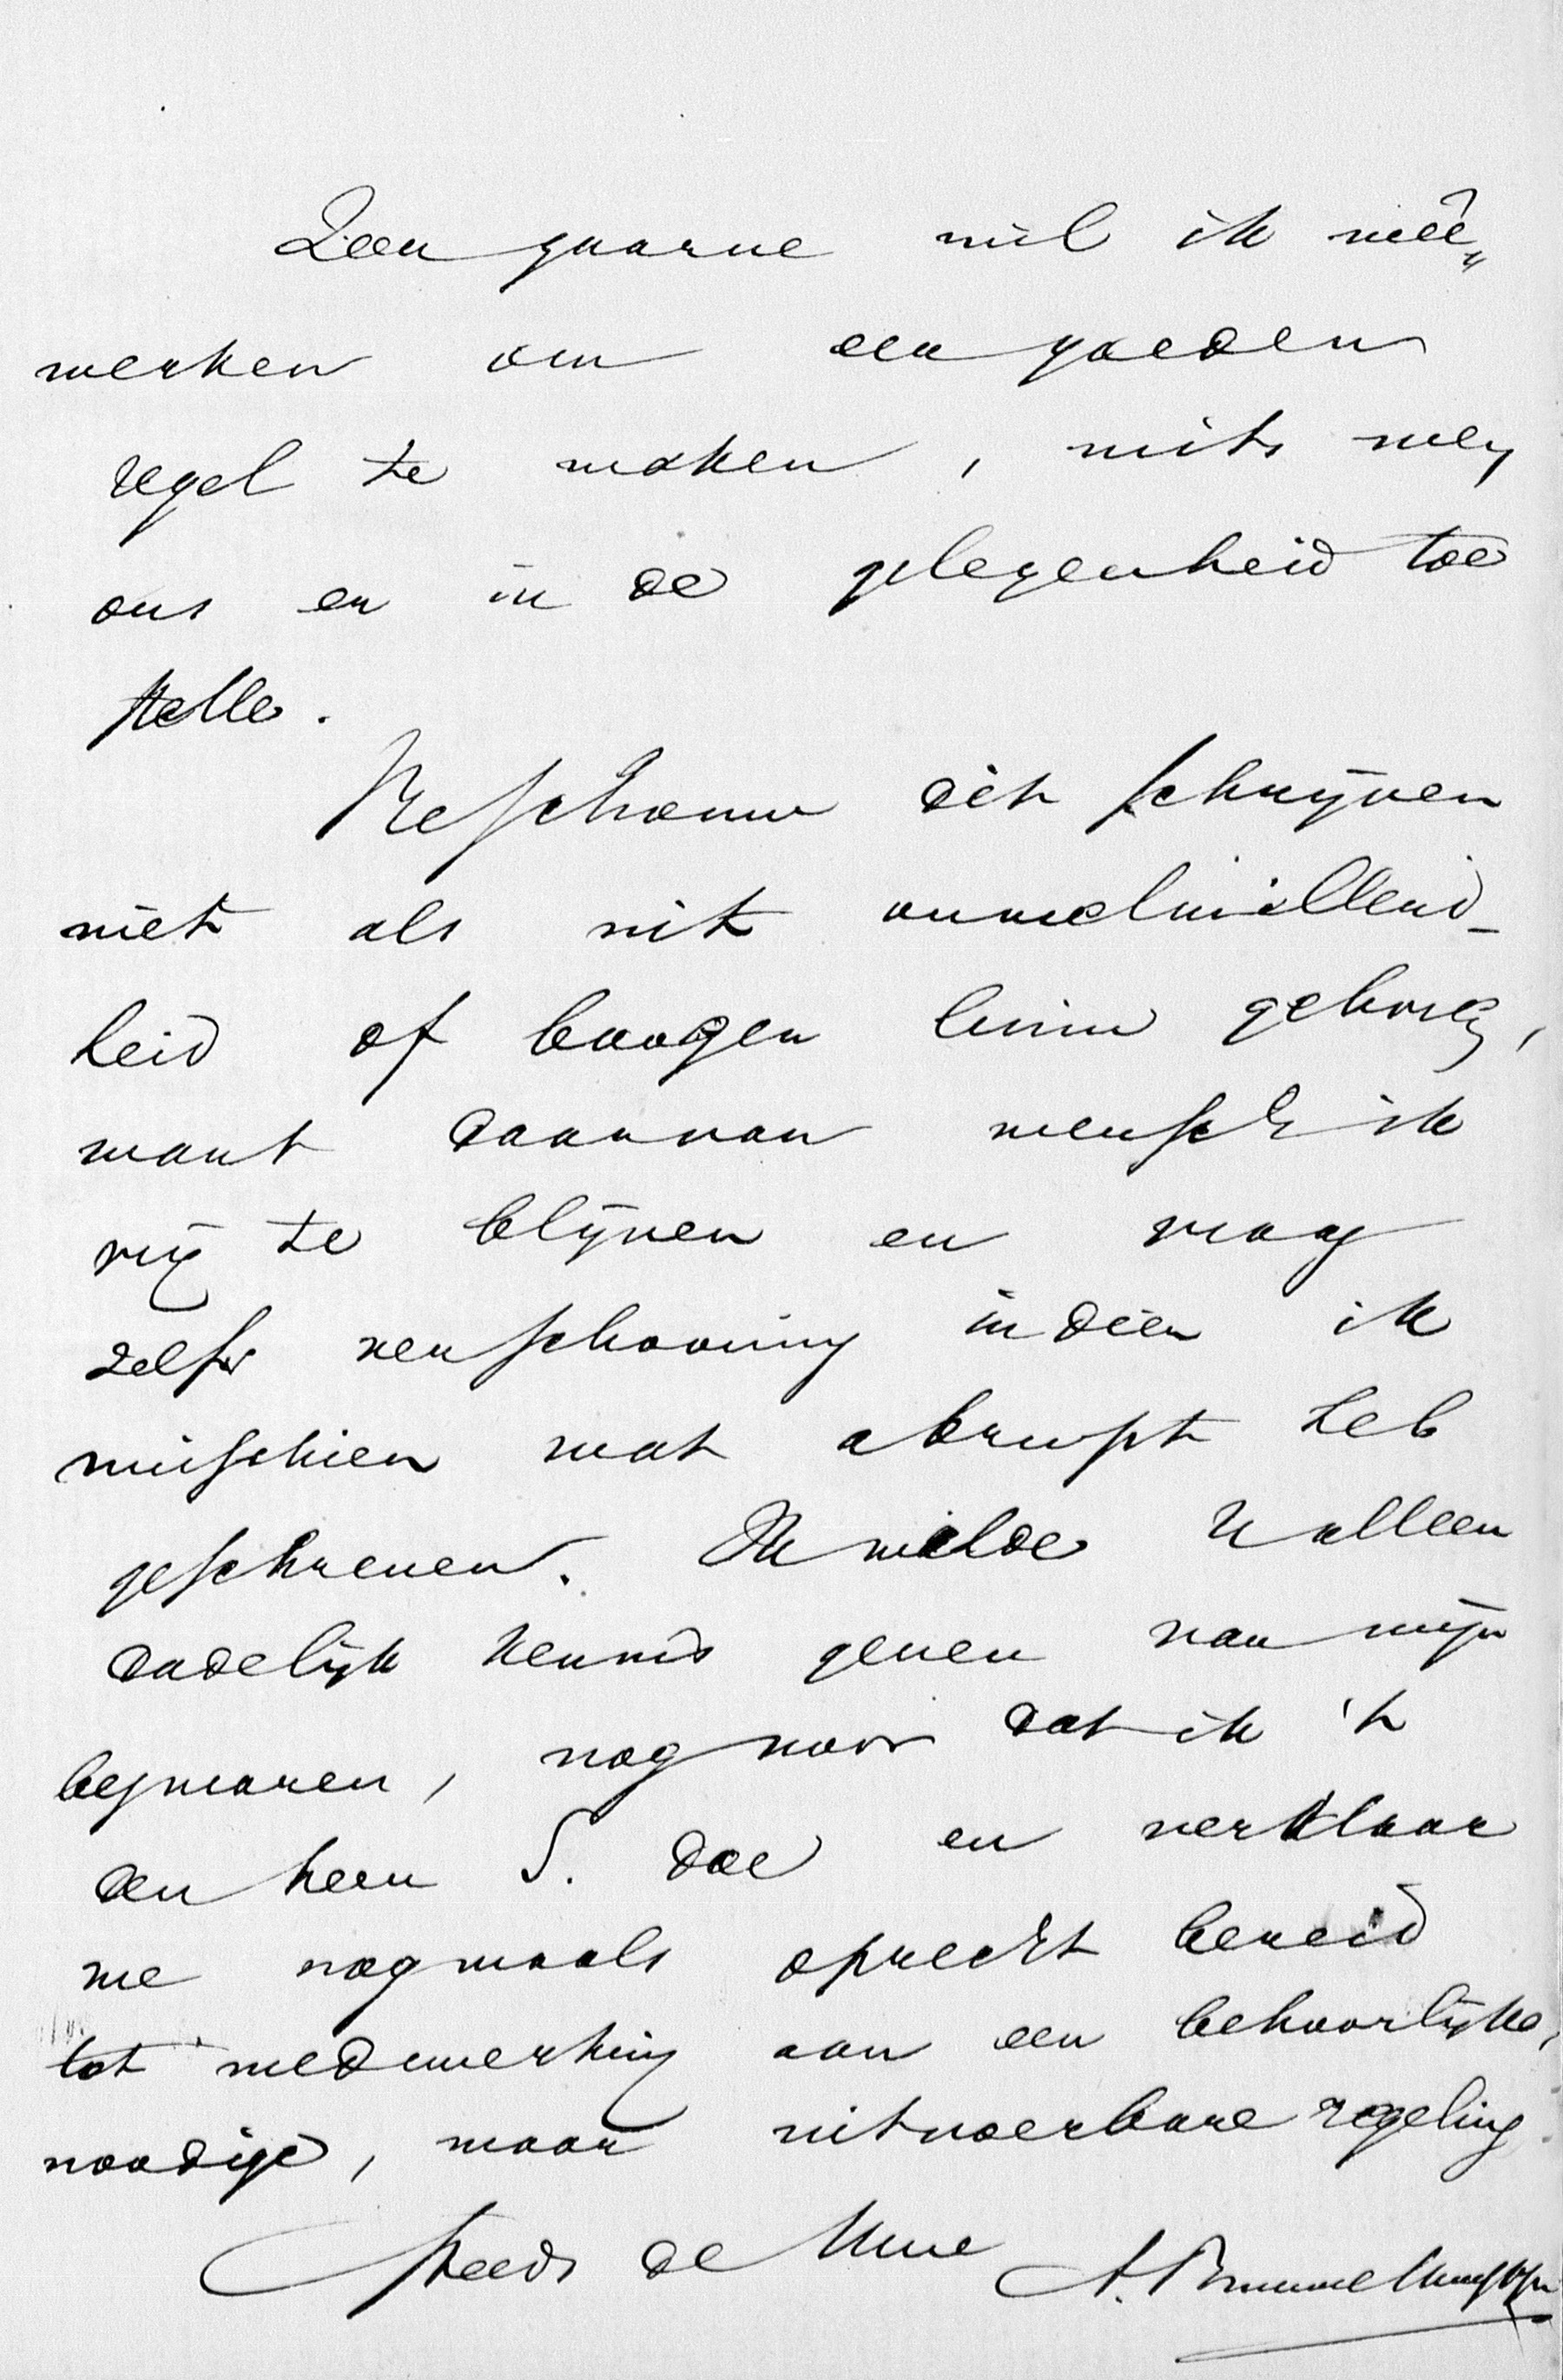 Zeer gaarne wil ik meê„
werken om een goeden
regel te maken, mits men
ons er in de gelegenheid toe
stelle.
Beschouw dit schrijven
niet als uit onwelwillend-
heid of boozen luim geboren,
want daarvan wensch ik
vrij te blijven en vraag
zelfs verschooning indien ik
misschien wat abrupt heb
geschreven. Ik wilde U alleen
dadelijk kennis geven van mijn
bezwaren, nog voor dat ik 't
den heer S. doe en verklaar
me nogmaals oprecht bereid
tot medewerking aan een behoorlijke,
noodige, maar uitvoerbare regeling.
Steeds de Uwe A.